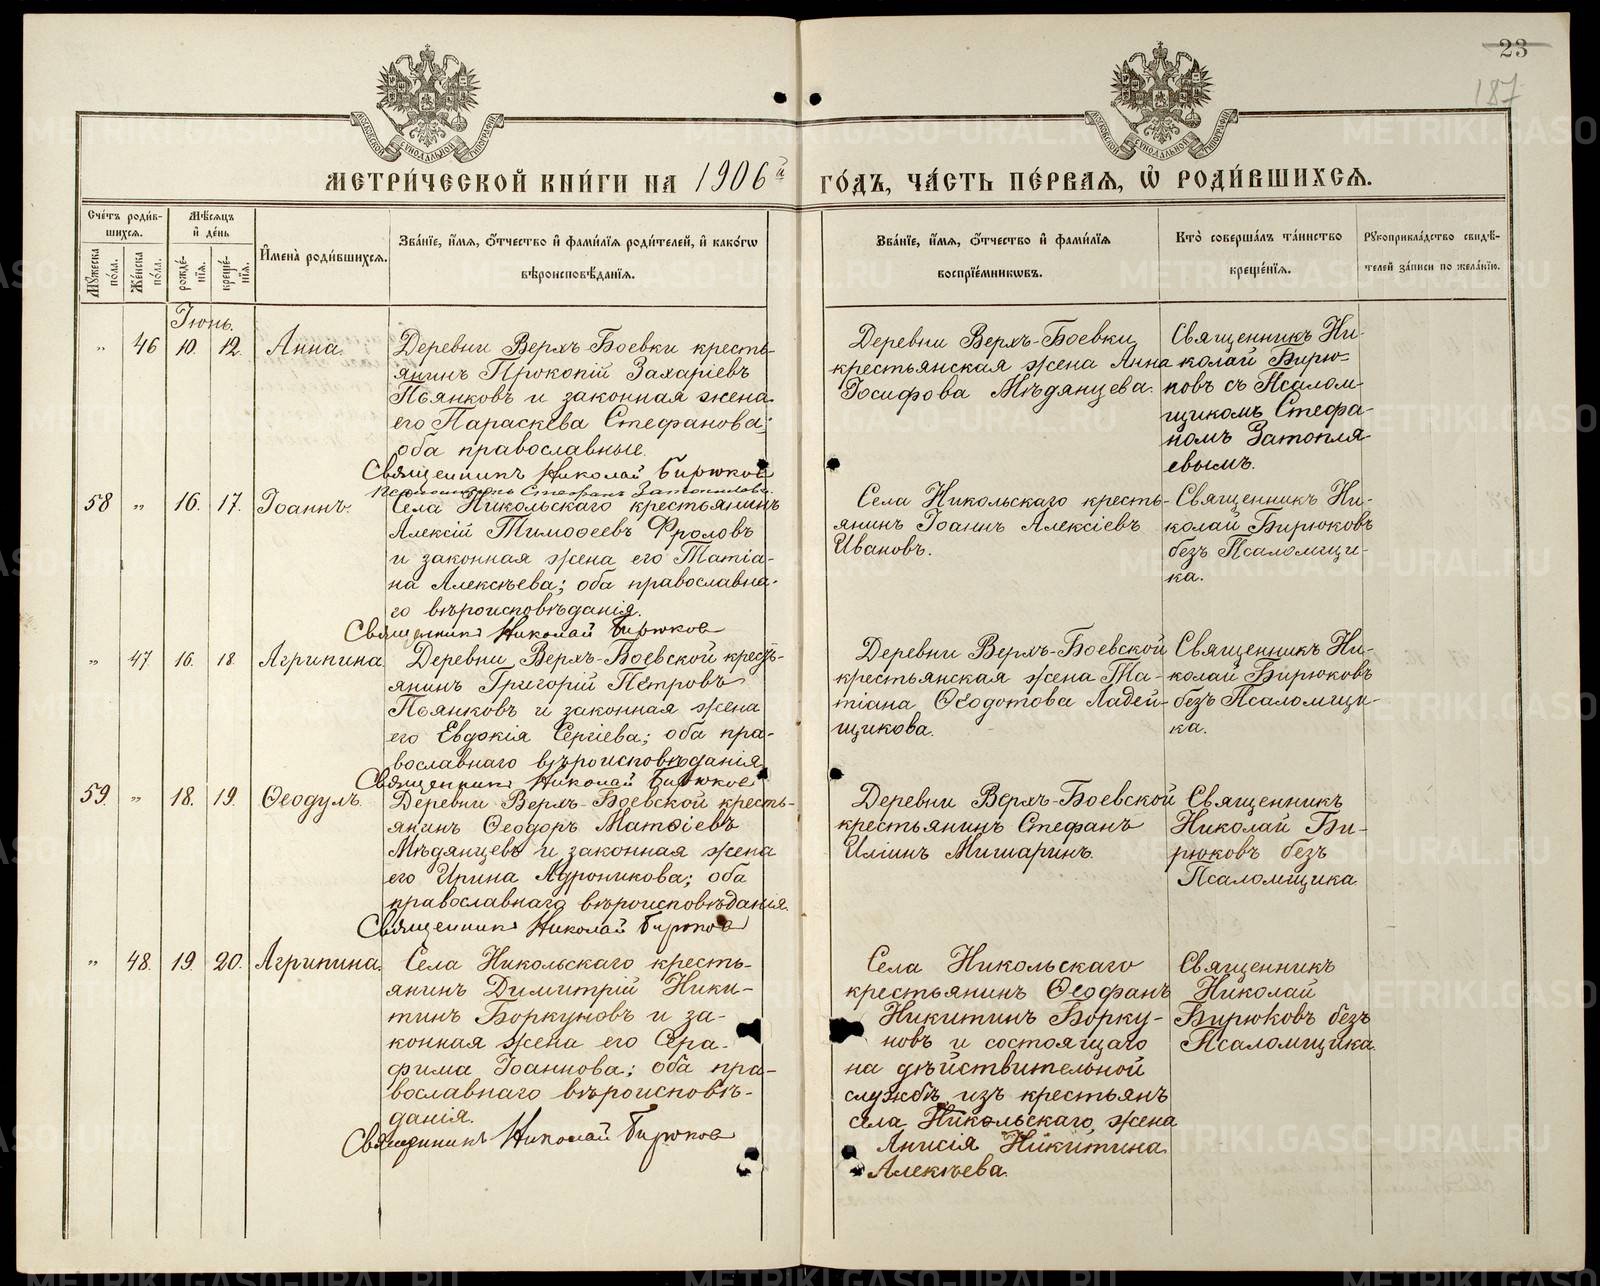 23
187
МЕТРИ́ЧЕСКОЙ КНИ́ГИ НА 1906й ГО́ДЪ, ЧА́СТЬ ПЕ́РВАЯ, Ѡ РОДИ́ВШИХСЯ.
Сче́тъ роди́в-
шихся.
Мѣ́сяцъ
и де́нь
Мꙋ́жеска
по́ла.
Же́нска
по́ла.
рожде́-
нїя.
креще́-
нїя.
Имена̀ роди́вшихся.
Зва́нїе, и́мя, о́тчество и фами́лїя роди́телей, и како́гѡ
вѣроисповѣ́данїя.
Зва́нїе, и́мя, о́тчество и фами́лїя
воспрїе́мникѡвъ.
Кто̀ соверша́лъ та́инство
креще́нїя.
Рꙋкоприкла́дство свидѣ́-
телей за́писи по жела́нїю.
Іюнь.
" 46 10. 12. Анна.
Деревни Верхъ-Боевки кресть-
янинъ Прокопій Захаріевъ
Пьянковъ и законная жена
его Параскева Стефанова;
оба православные.
Священникъ Николай Бирюковъ
Псаломщикъ Стефанъ Затопляевъ
Деревни Верхъ-Боевки
крестьянская жена Анна
Іосифова Мѣдянцева.
Священникъ Ни-
колай Бирю-
ковъ съ Псалом-
щикомъ Стефа-
номъ Затопля
евымъ.
58 " 16. 17. Іоаннъ.
Села Никольскаго крестьянинъ
Алексій Тимоѳеевъ Фроловъ
и законная жена его Татіа-
на Алексѣева; оба православна-
го вѣроисповѣданія.
Священникъ Николай Бирюковъ
Села Никольскаго кресть-
янинъ Іоаннъ Алексіевъ
Ивановъ.
Священникъ Ни-
колай Бирюковъ
безъ Псаломщи-
ка.
" 47 16. 18. Агрипина
Деревни Верхъ-Боевской кресть-
янинъ Григорій Петровъ
Пьянковъ и законная жена
его Евдокія Сергіева; оба пра-
вославнаго вѣроисповѣданія
Священникъ Николай Бирюковъ
Деревни Верхъ-Боевской
крестьянская жена Та-
тіана Ѳеодотова Ладей-
щикова.
Священникъ Ни-
колай Бирюковъ
безъ Псаломщи-
ка.
59. " 18. 19. Ѳеодулъ
Деревни Верхъ-Боевской кресть-
янинъ Ѳеодоръ Матѳіевъ
Мѣдянцевъ и законная жена
его Ирина Адроникова; оба
православнаго вѣроисповѣданія.
Священникъ Николай Бирюковъ
Деревни Верхъ-Боевской
крестьянинъ Стефанъ
Иліинъ Мишаринъ.
Священникъ
Николай Би-
рюковъ безъ
Псаломщика
" 48. 19. 20. Агрипина.
Села Никольскаго кресть-
янинъ Димитрій Ники-
тинъ Боркуновъ и за-
конная жена его Сера-
фима Іоаннова; оба пра-
вославнаго вѣроисповѣ-
данія.
Священникъ Николай Бирюковъ
Села Никольскаго
крестьянинъ Ѳеофанъ
Никитинъ Борку-
новъ и состоящаго
на дѣйствительной
службѣ, изъ крестьянъ
села Никольскаго, жена
Анисія Никитина
Алексѣева.
Священникъ
Николай
Бирюковъ безъ
Псаломщика.
METRIKI.GASO-URAL.RU